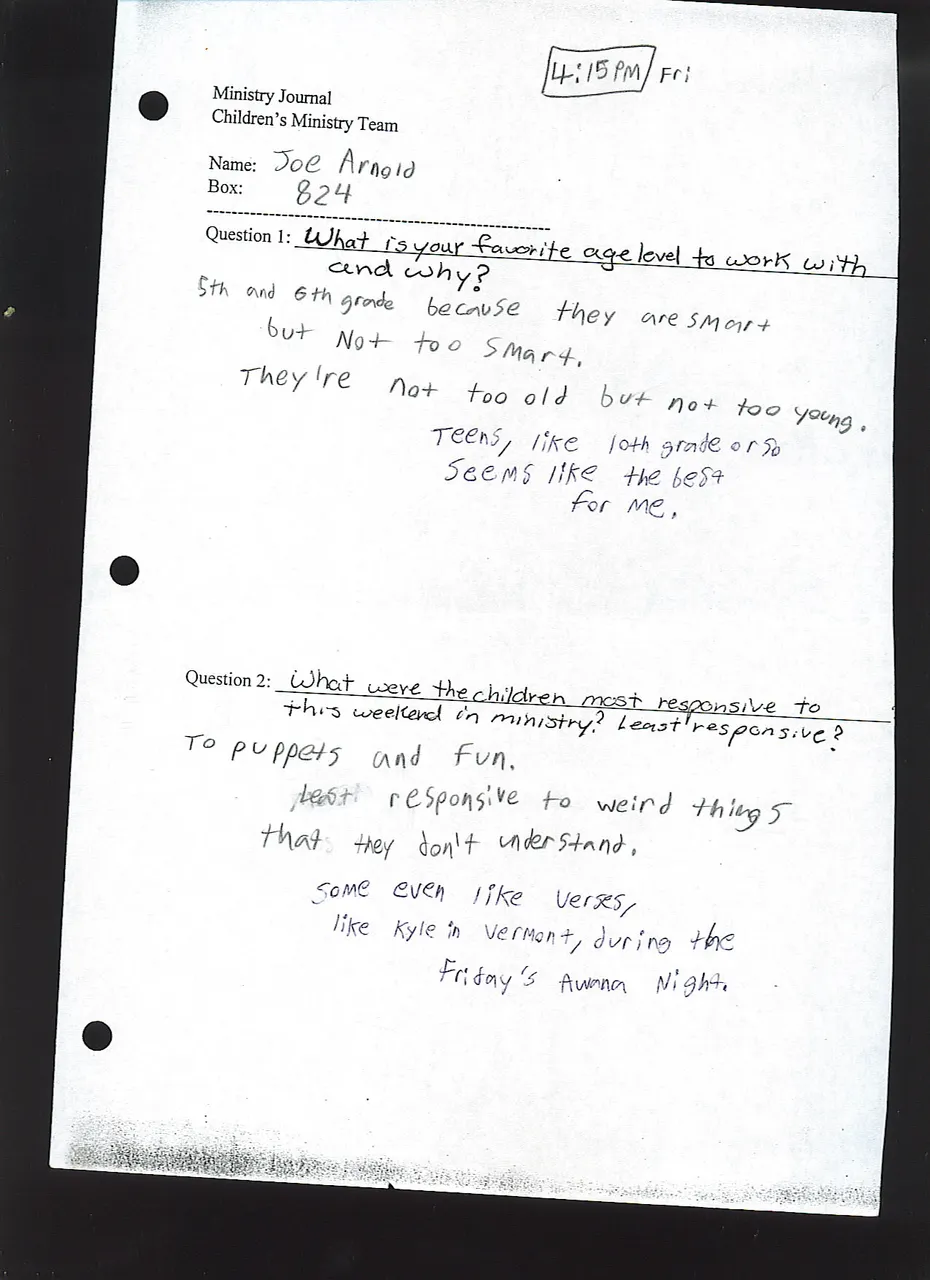 4:15PM Fri
Ministry Journal
Children's Ministry Team
Name: Joe Arnold
Box: 824
Question 1: What is your favorite age level to work with
and why?
5th and 6th grade because they are smart
but Not too smart.
They're not too old but not too young.
Teens, like 10th grade or so
seems like the best
for me.
Question 2: What were the children most responsive to
this weekend in ministry? Least responsive?
To puppets and fun.
Least responsive to weird things
that they don't understand.
some even like verses,
like Kyle in Vermont, during the
Friday's Awana Night.